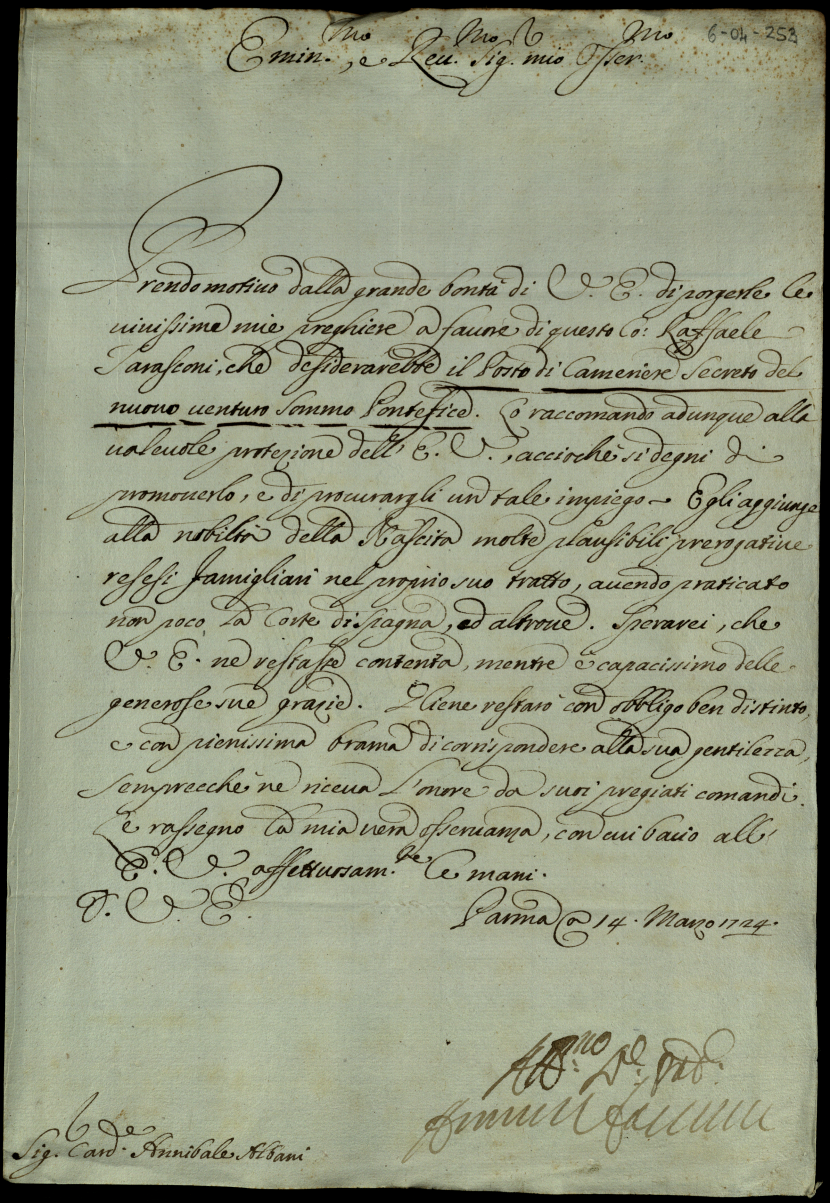 6-04-253
Emin.mo, e Reu.mo Sig.r mio Osser.mo
Prendo motiuo dalla grande bontà di V. E. di porgerle le
viuissime mie preghiere a fauore di questo Co: Raffaele
Tarasconi, che desiderarebbe il Posto di Cameriere Secreto del
nuouo uenturo Sommo Pontefice. Lo raccomando adunque alla
ualeuole protezione dell' E. V., acciochè si degni di
promouerlo, e di procurargli un tale impiego. Egli aggiunge
alla nobiltà della Nascita molte plausibili prerogatiue
resesi famigliari nel proprio suo tratto, auendo praticato
non poco la Corte di Spagna, ed altroue. Sperarei, che
V. E. ne restasse contenta, mentre è capacissimo delle
generose sue grazie. Gliene restarò con obbligo ben distinto,
e con pienissima brama di corrispondere alla sua gentilezza,
sempreche ne riceua l'onore da suoi pregiati comandi.
Le rassegno la mia uera osseruanza, con cui bacio all'
E. V. affettuosam.te le mani.
D. V. E.
Parma a 14. Marzo 1724.
Sig.r Card.le Annibale Albani